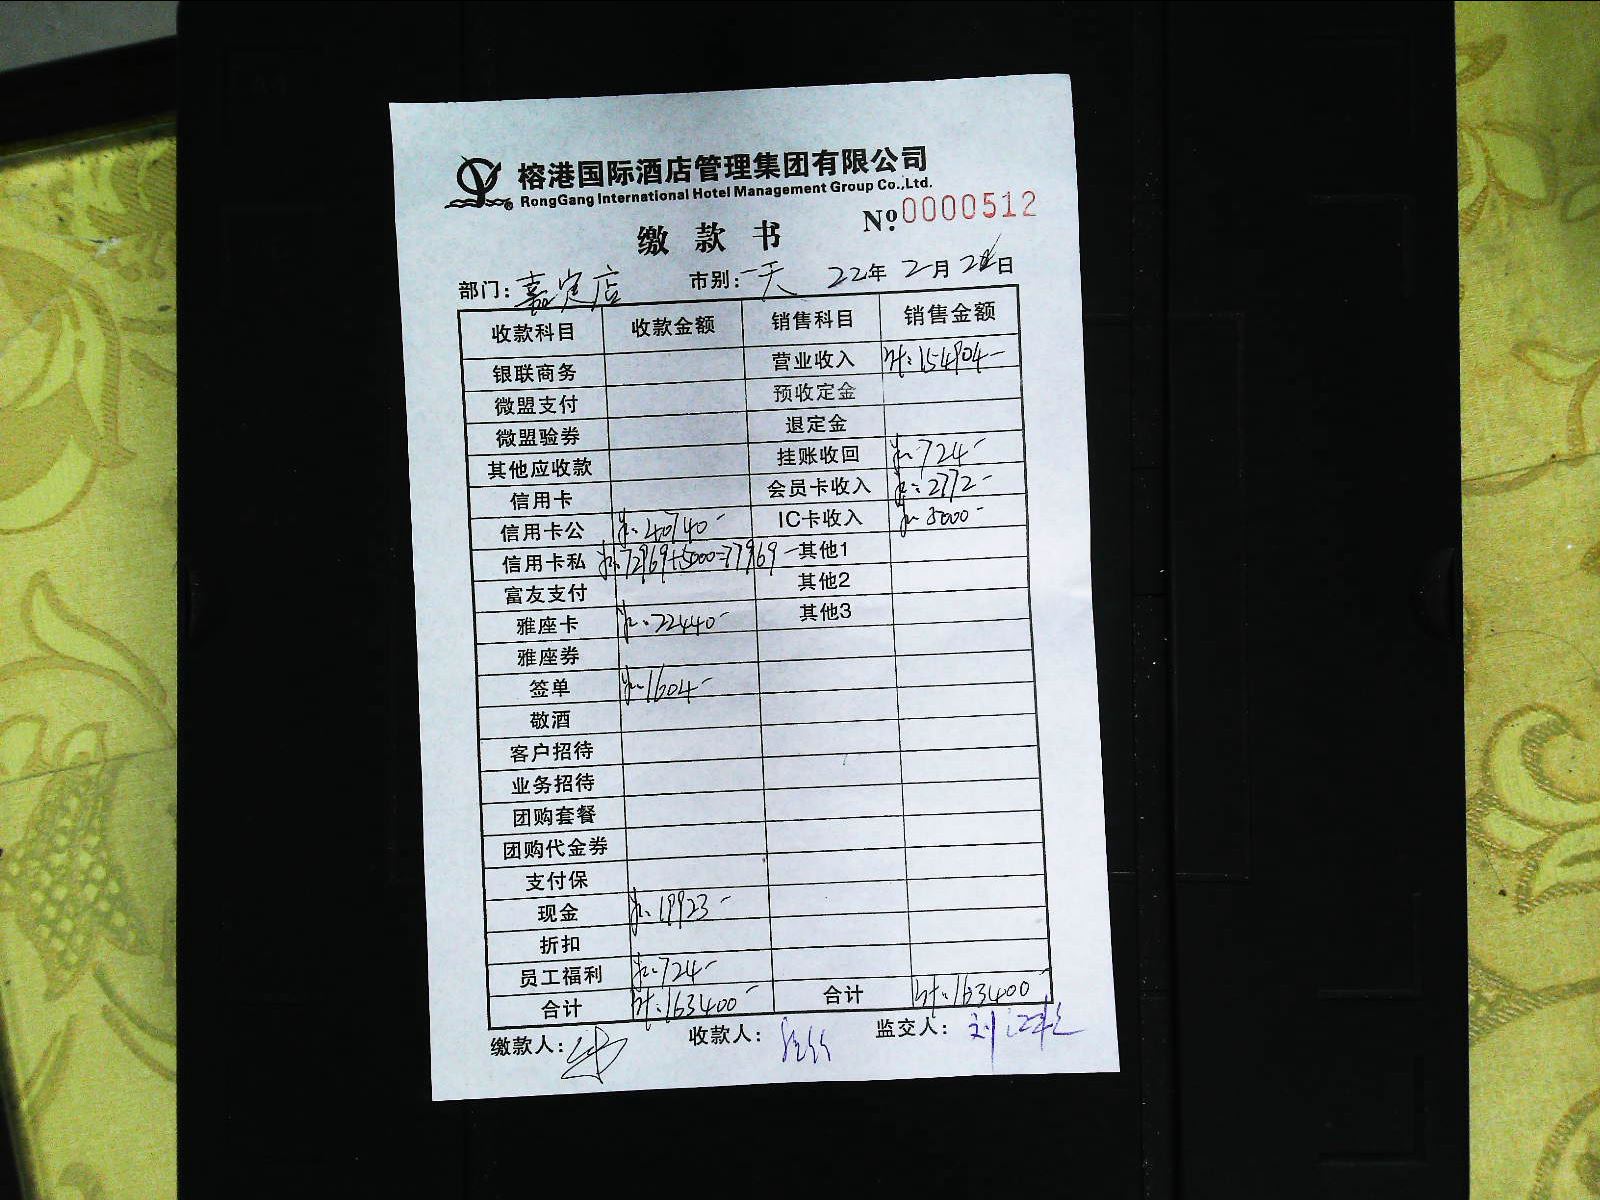 榕港国际酒店管理集团有限公司
RongGang International Hotel Management Group Co.,Ltd.
缴款书 Nº:0000512
部门:嘉定店 市别:一天 22年2月 日
收款科目 收款金额 销售科目 销售金额
银联商务 营业收入 计:154904-
微盟支付 预收定金
微盟验券 退定金
其他应收款 挂账收回 724-
信用卡 会员卡收入 2772-
信用卡公 40740- IC卡收入 5000-
信用卡私 72969+5000=77969- 其他1
富友支付 其他2
雅座卡 22440- 其他3
雅座券
签单 1604-
敬酒
客户招待
业务招待
团购套餐
团购代金券
支付保
现金 19923-
折扣
员工福利 724-
合计 计:163400- 合计 计:163400-
缴款人: 收款人: 监交人:刘